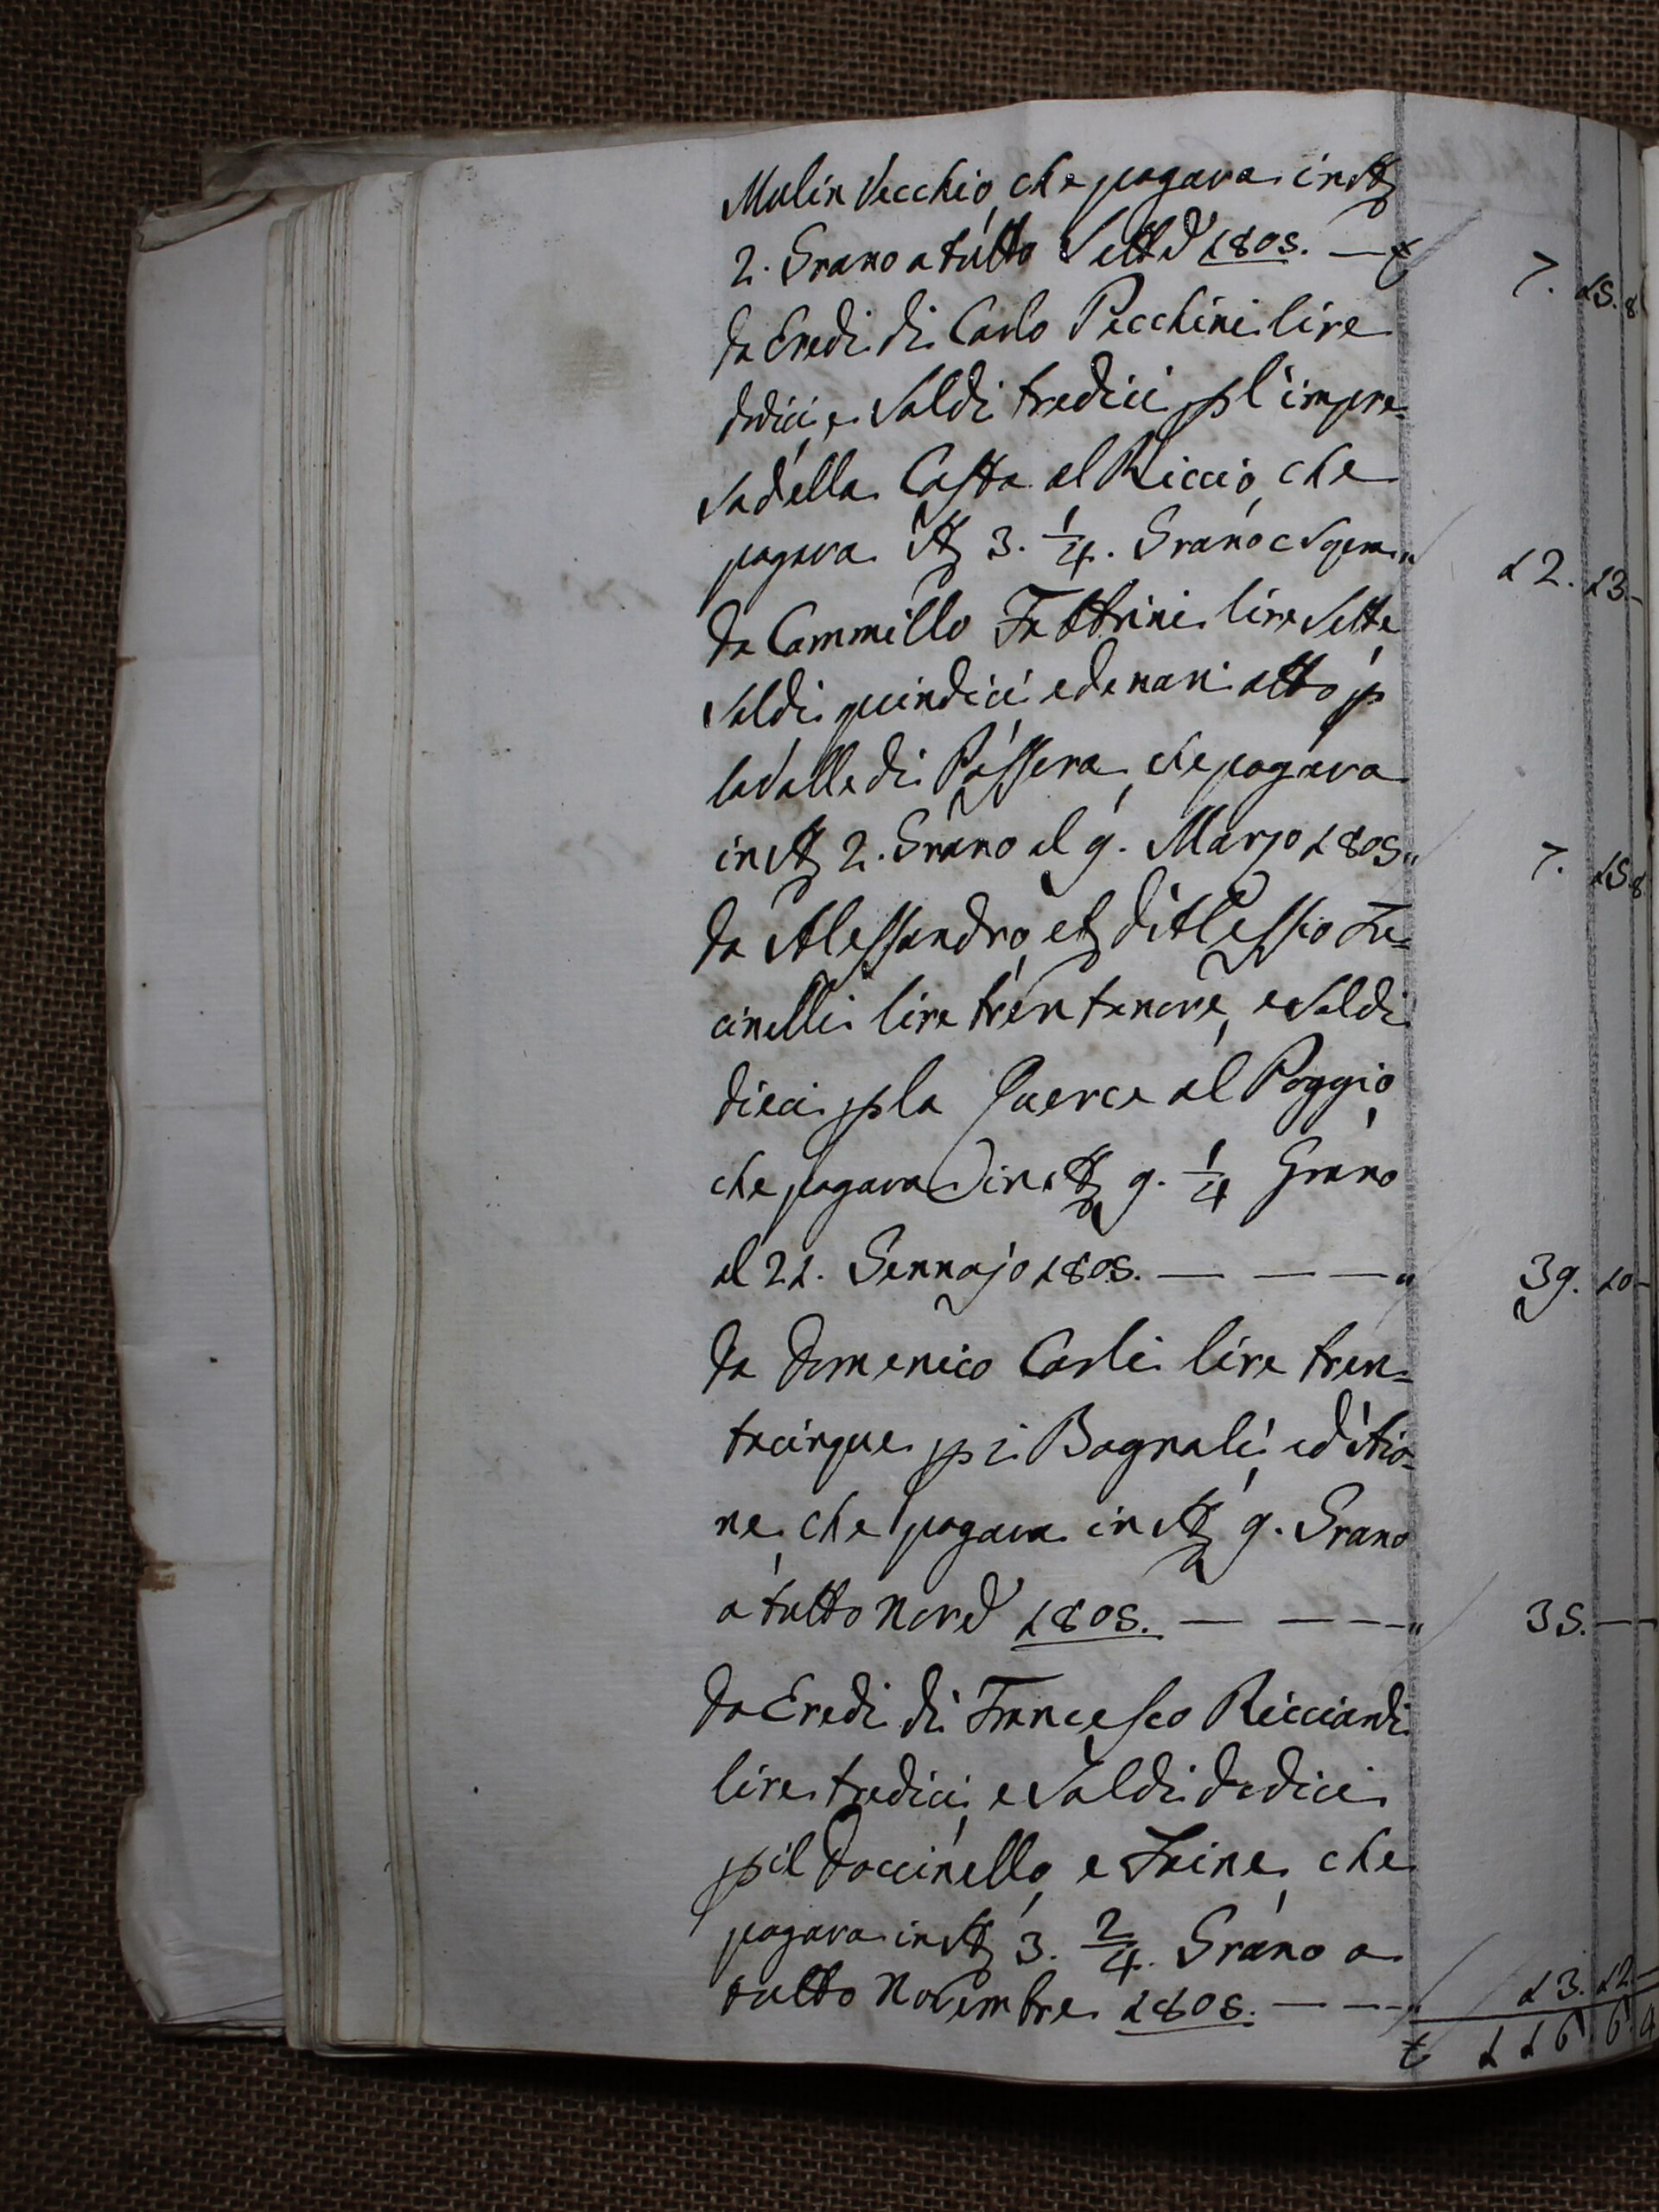 Mulin Vecchio, che pagava in st
2. Grano a tutto Sett.e 1805. — £ 7. 15. 8
Da Eredi di Carlo Pecchini lire
dodici, e Soldi tredici p l'impre=
sa della Costa al Riccio, che
pagava st 3. 1/4. Grano e " 12. 13. –
Da Cammillo Fattrini lire Sette
Soldi quindici e denari otto p
la Valle di Passera, che pagava
in st 2. Grano al 9. Marzo 1805 " 7. 15. 8
Da Alessandro, et di Alessio Fu=
cinelli lire trentanove, e Soldi
dieci p la Querce al Poggio,
che pagava in st 9. 1/4 Grano
al 21. Gennajo 1805. — — — " 39. 10 –
Da Domenico Carli lire tren=
tacinque p i Bagnali, ed Atio=
ne, che pagava in st 9. Grano
a tutto Nov.e 1805. — — — " 35. — —
Da Eredi di Francesco Ricciardi
lire tredici, e Soldi dodici
p il Doccinello, e Frine, che
pagava in st 3. 2/4. Grano a
tutto Novembre 1805. — — " 13. 12 –
£ 116. 6. 4